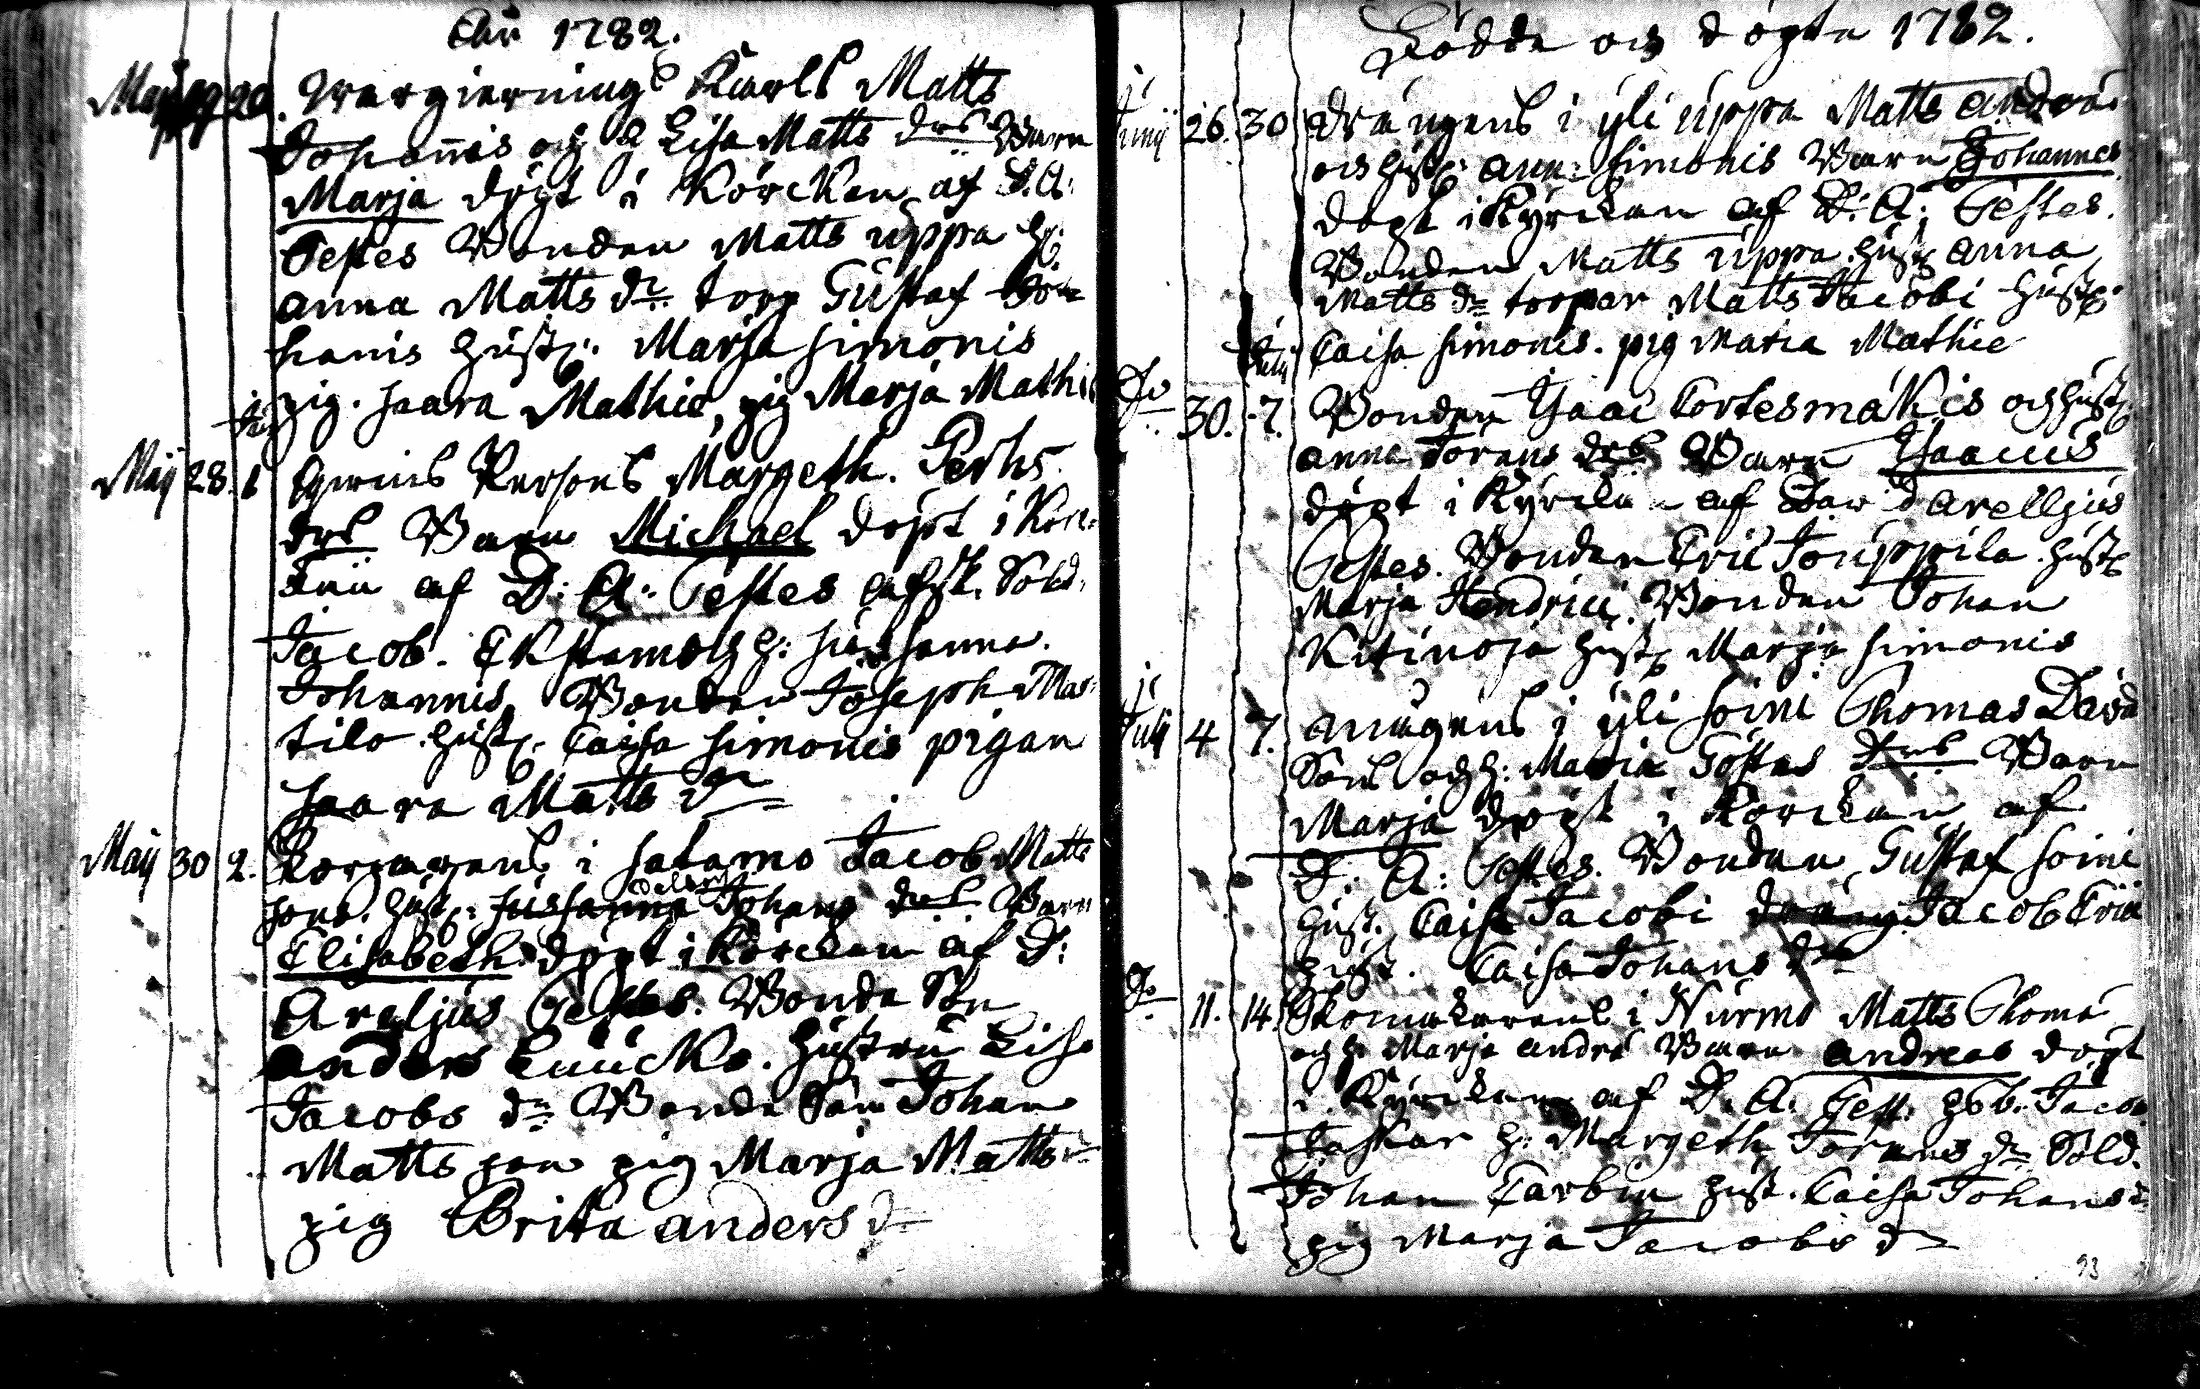 Åhr 1782.
May 19 20. Wargierings Karls Matts
Johannis och h Lisa Matts drs Barn
Marja döpt i Körckan af D. A:
Testes Bonden Matts uppa h:
anna Matts dr. torp Gustaf Jo-
hanis hustr: Marja Simonis
pig. Saara Mathie, pig Marja Mathie
Juny
May 28. 1 Qwins Persons Margeth. Perhs
drs Barn Michael döpt i Körc-
kan af D: A: Testes afsk. Sold.
Jacob. Ekstam och h: Sussanna.
Johannis Bonden Joseph Mas-
tilo hustr. Caisa Simonis pigan
Saara Matts dr
May 30 2. torparens i Salamo Jacob Matts
sons. hust: Sussanna Johans drs Barn
Elisabeth döpt i Körckan af D:
Areljus Testes. Bonde Son
anders Luucko. hustru Lisa
Jacobs dr Bonde Son Johan
Matts son pig Marja Matts dr
pig Brita anders dr
Födde och döpte 1782.
Junij 26. 30 drängens i yli uppa Matts andrá
och hustr: ann: Simonis Barn Johannes
döpt i Kyrckan af D: A: Testes.
Bonden Matts uppa hustr anna
Matts dr torpar Matts Jacobi hustr:
Caisa Simonis. pig Maria Mathie
July
Do 30. 7. Bonden Ysaac Cortesmäkis och hustr.
anna Jörans drs Barn Ysaacus
döpt i Kyrckan af D arelljus
Testes. Bonden Eric Jouppila hustr
Marja Hendrici. Bonden Johan
Kitinoja hustr Marja Simonis
Julij 4 7. mågens i yli Soini Thomas David
Sons och h: Maria Göstas drs Barn
Marja döpt i Körckan af
D: A: Testes. Bonden Gustaf Soini
hust. Caisa Jacobi dräng Jacob Eric
hust. Caisa Johans dr
Do 11. 14. Skomakarens i Nurmo Matts Thomæ
och h: Marja andrá Barn andreas döpt
i Kyrckan af D: A: Test. Jacob
Taskar h: Margeth Jörans dr Sold.
Johan Carbin hust. Caisa Johans dr
pig Marja Jacobs dr
93